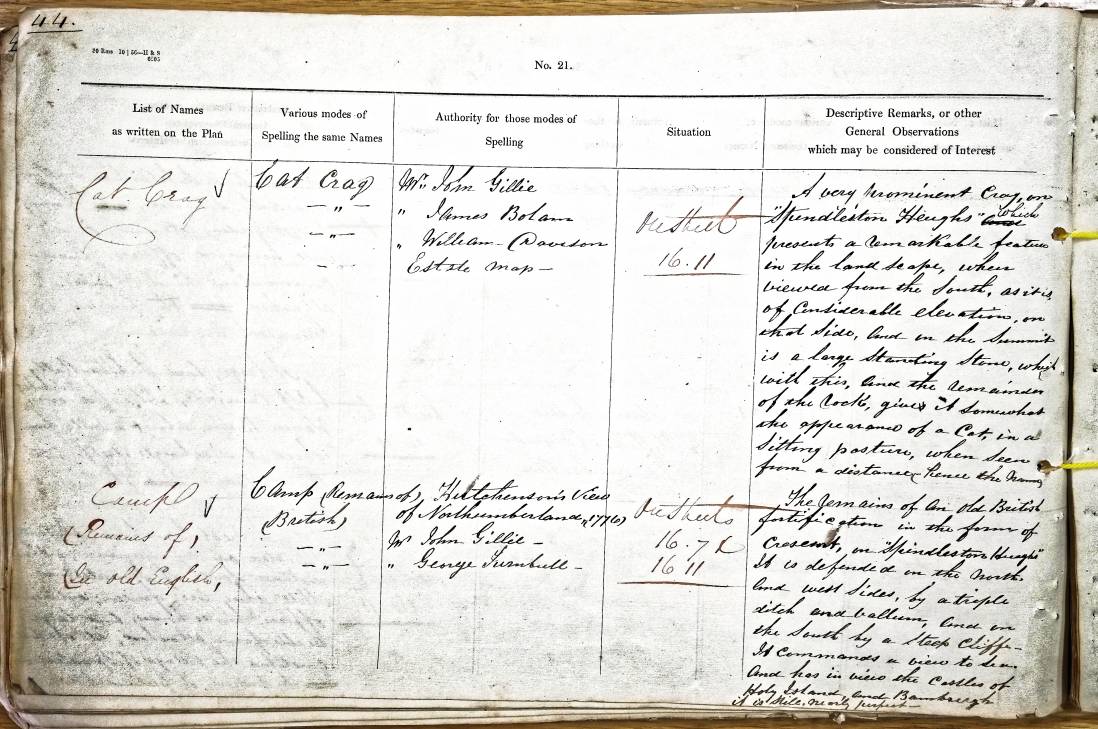 44.
No. 21.
List of Names
as written on the Plan
Various modes of
Spelling the same Names
Authority for those modes of
Spelling
Situation
Descriptive Remarks, or other
General Observations
which may be considered of Interest
Cat Crag
Cat Crag
Mr. John Gillie
" James Bolam
" William Davison
Estate Map
On Sheet
16.11
A very prominent Crag, on
"Spindleston Heughs" which
presents a remarkable feature
in the landscape, when
viewed from the South, as it is
of Considerable elevation, on
that Side, and on the Summit
is a large Standing Stone, which
with this, and the remainder
of the rock, gives it somewhat
the appearance of a Cat, in a
Sitting posture, when seen
from a distance (hence the Name)
Camp
(Remains of)
(In old English)
Camp (Remains of)
(British)
Hutchenson's View
of Northumberland, (1776)
Mr John Gillie -
" George Turnbull -
On Sheets
16.7 &
16.11
The remains of An old British
fortification in the form of
Crescent, on "Spindleston Heughs"
It is defended on the North
and west Sides, by a triple
ditch and vallum, and on
the South by a Steep Cliff -
It Commands a view to Sea
And has in view the Castles of
Holy Island, and Bambrough
it is still nearly perfect -